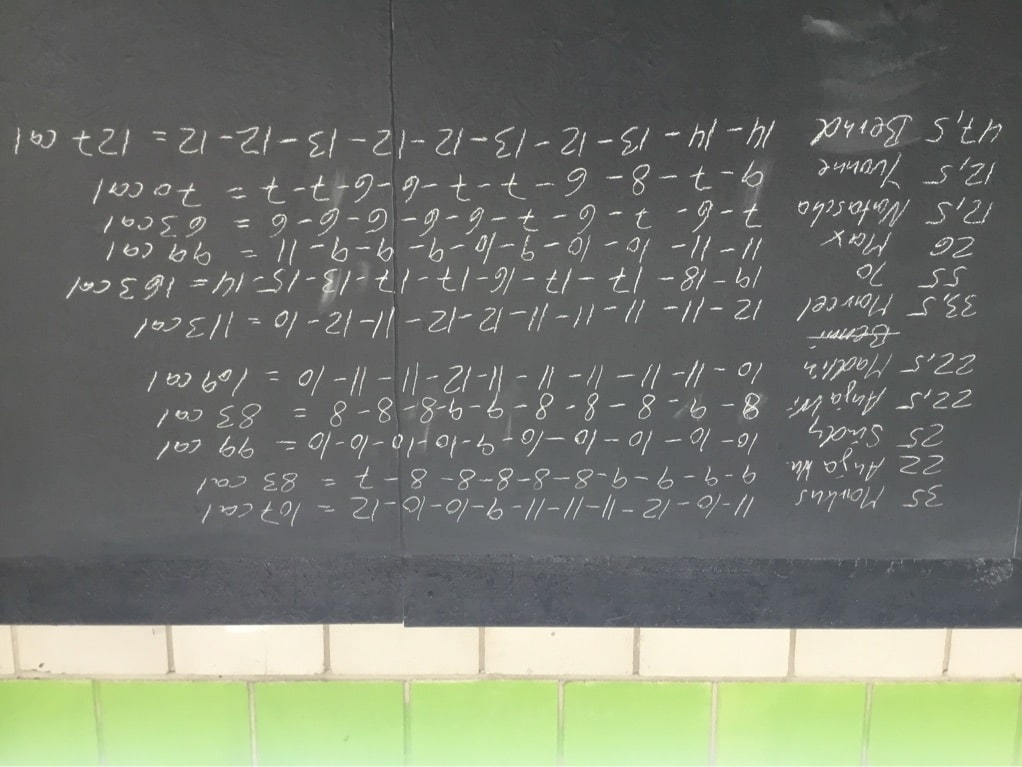 35 Markus 11-10-12-11-11-11-9-10-10-12 = 107 cal
22 Anja 9-9-9-9-8-8-8-8-8-7 = 83 cal
25 Sindy 10-10-10-10-10-9-10-10-10-10 = 99 cal
22,5 Anja W. 8-9-8-8-8-9-9-8-8-8 = 83 cal
22,5 Madlin 10-11-11-11-11-11-12-11-11-10 = 109 cal
Benni
33,5 Marcel 12-11-11-11-11-12-12-11-12-10 = 113 cal
55 Jo 19-18-17-17-16-17-17-13-15-14 = 163 cal
26 Max 11-11-10-10-9-10-9-9-9-11 = 99 cal
12,5 Natascha 7-6-7-6-7-6-6-6-6-6 = 63 cal
12,5 Yvonne 9-7-8-6-7-7-6-6-7-7 = 70 cal
47,5 Bernd 14-14-13-12-13-12-12-13-12-12 = 127 cal